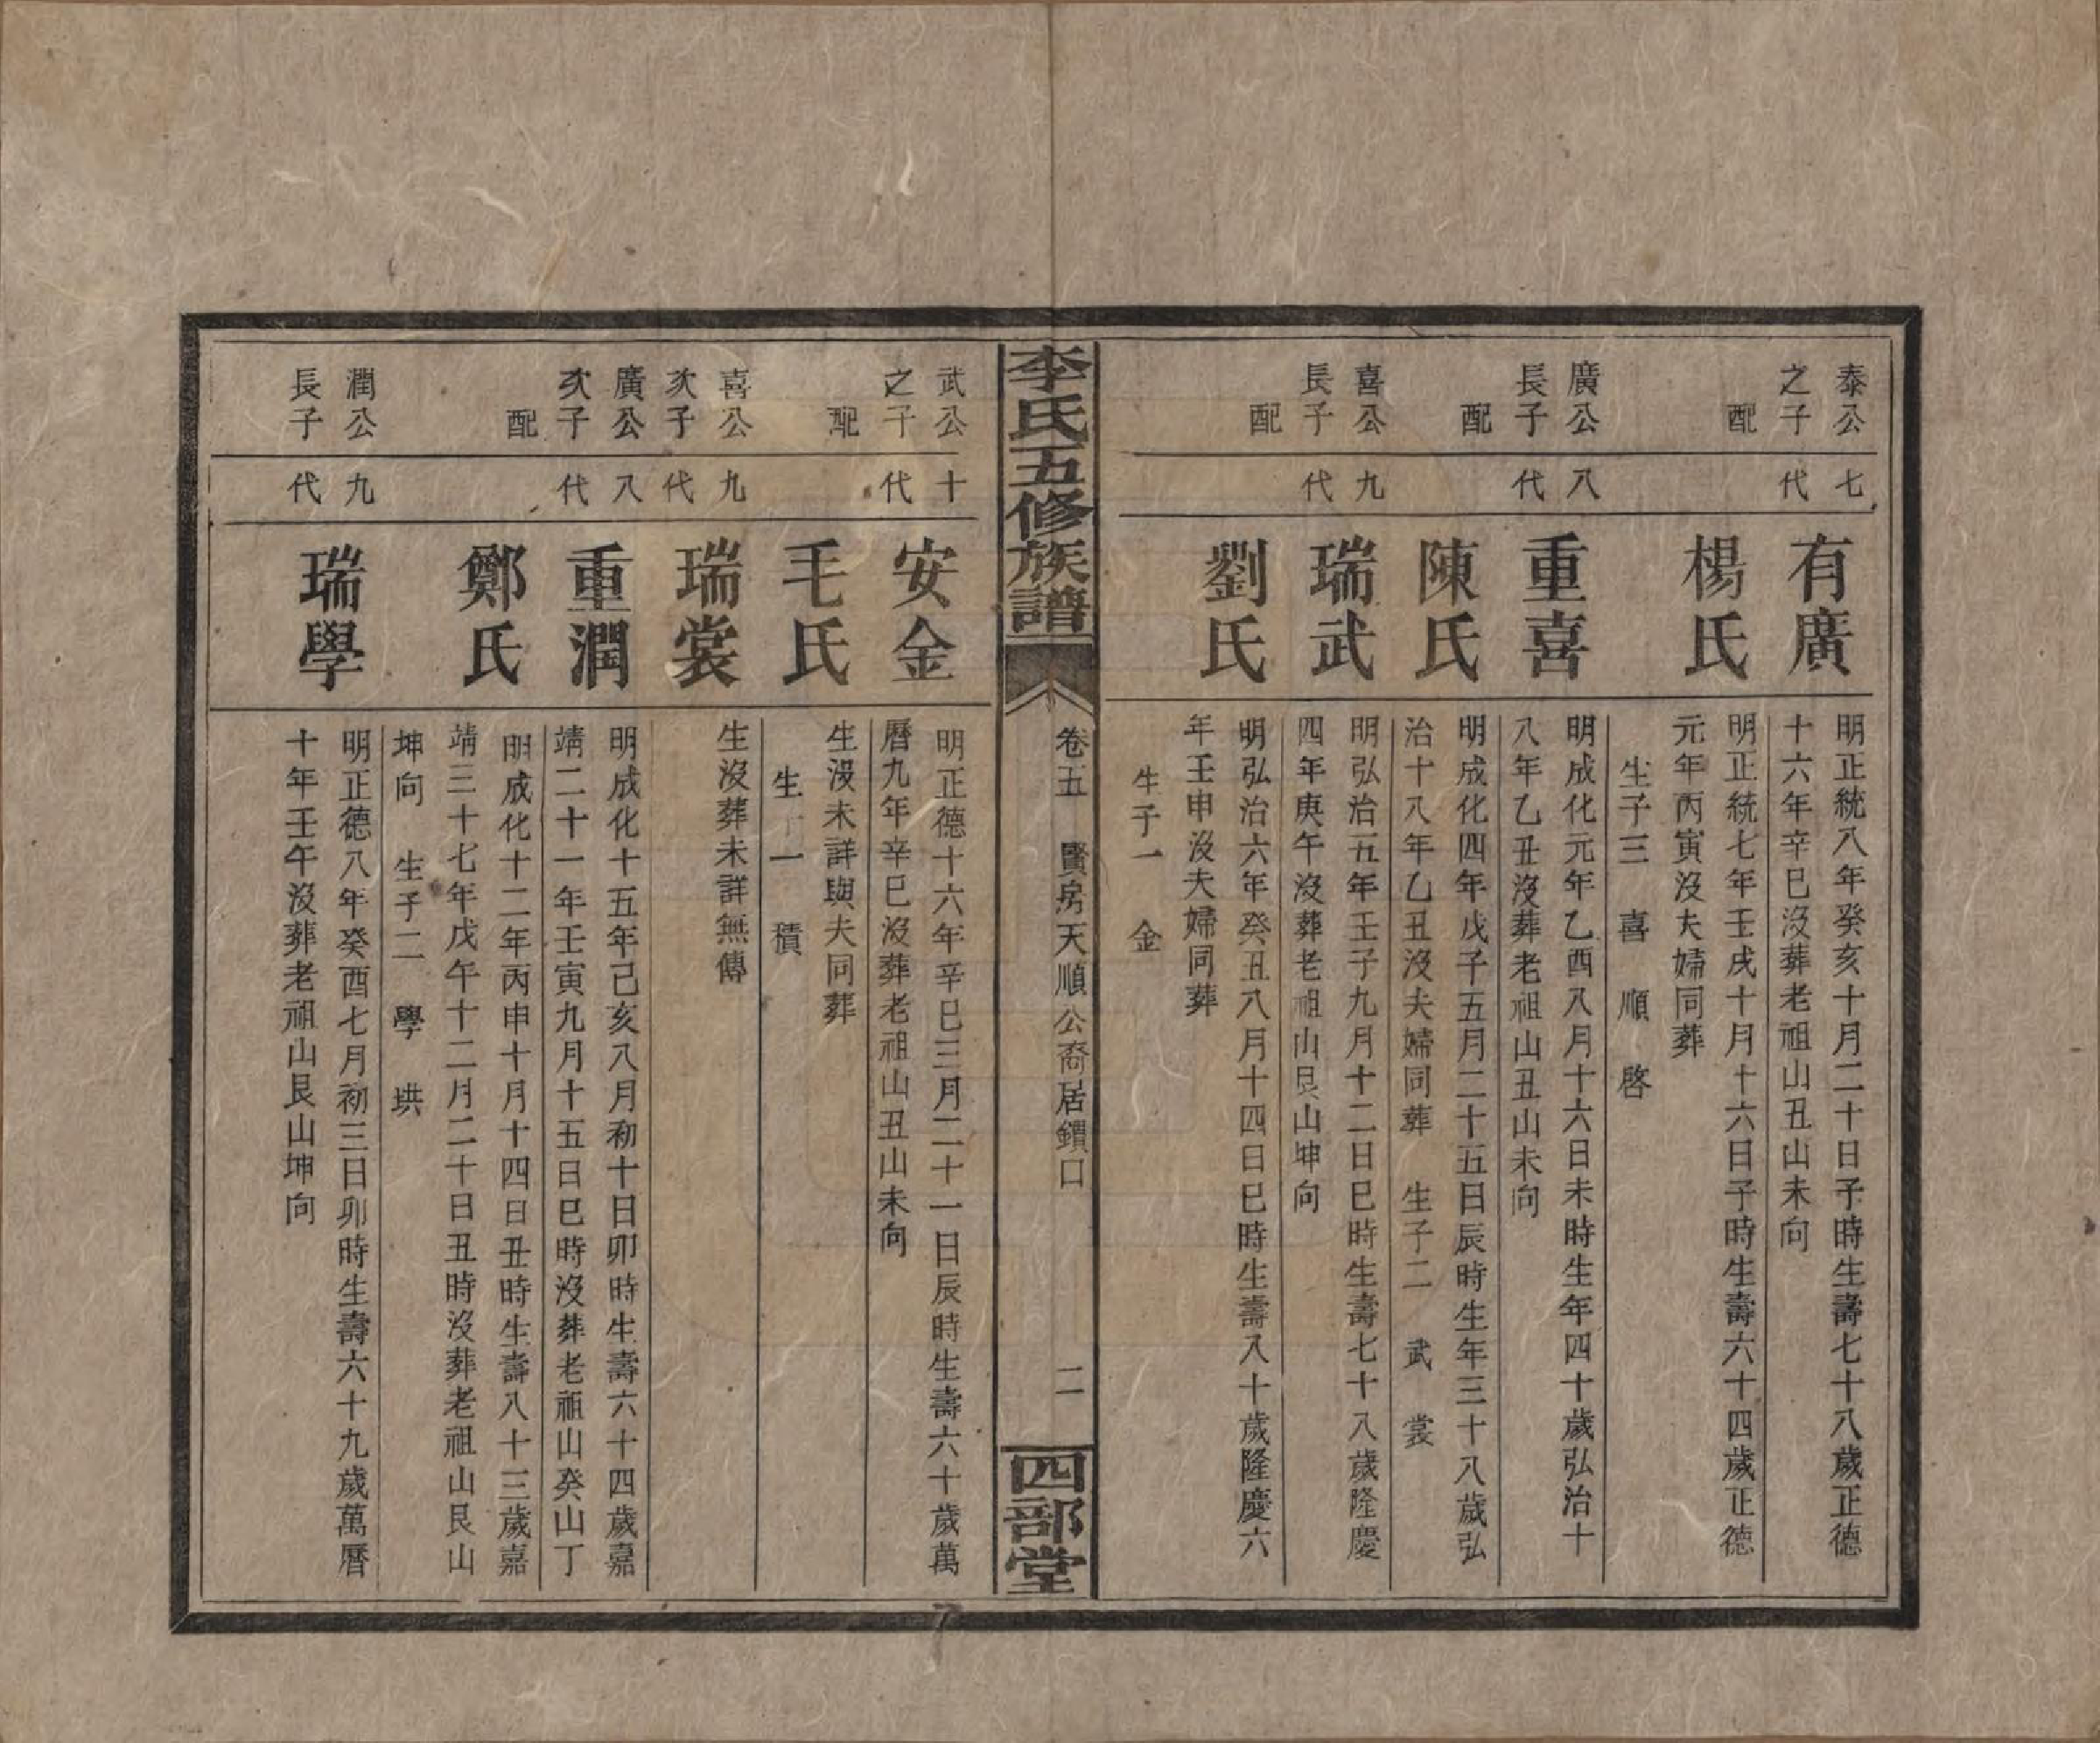 泰公
之子
七
代
有廣
明正統八年癸亥十月二十日子時生壽七十八歲正德
十六年辛巳沒葬老祖山丑山未向
配
楊氏
明正統七年壬戌十月十六日子時生壽六十四歲正德
元年丙寅沒夫婦同葬
生子三 喜 順 啓
廣公
長子
八
代
重喜
明成化元年乙酉八月十六日未時生年四十歲弘治十
八年乙丑沒葬老祖山丑山未向
配
陳氏
明成化四年戊子五月二十五日辰時生年三十八歲弘
治十八年乙丑沒夫婦同葬 生子二 武 裳
喜公
長子
九
代
瑞武
明弘治五年壬子九月十二日巳時生壽七十八歲隆慶
四年庚午沒葬老祖山艮山坤向
配
劉氏
明弘治六年癸丑八月十四日巳時生壽八十歲隆慶六
年壬申沒夫婦同葬
生子一 金
李氏五修族譜
卷五 賢房天順公裔居鎖口
二
四部堂
武公
之子
十
代
安金
明正德十六年辛巳三月二十一日辰時生壽六十歲萬
曆九年辛巳沒葬老祖山丑山未向
配
毛氏
生沒未詳與夫同葬
生子一 積
喜公
次子
九
代
瑞裳
生沒葬未詳無傳
廣公
次子
八
代
重潤
明成化十五年己亥八月初十日卯時生壽六十四歲嘉
靖二十一年壬寅九月十五日巳時沒葬老祖山癸山丁
配
鄭氏
明成化十二年丙申十月十四日丑時生壽八十三歲嘉
靖三十七年戊午十二月二十日丑時沒葬老祖山艮山
坤向 生子二 學 珙
潤公
長子
九
代
瑞學
明正德八年癸酉七月初三日卯時生壽六十九歲萬曆
十年壬午沒葬老祖山艮山坤向